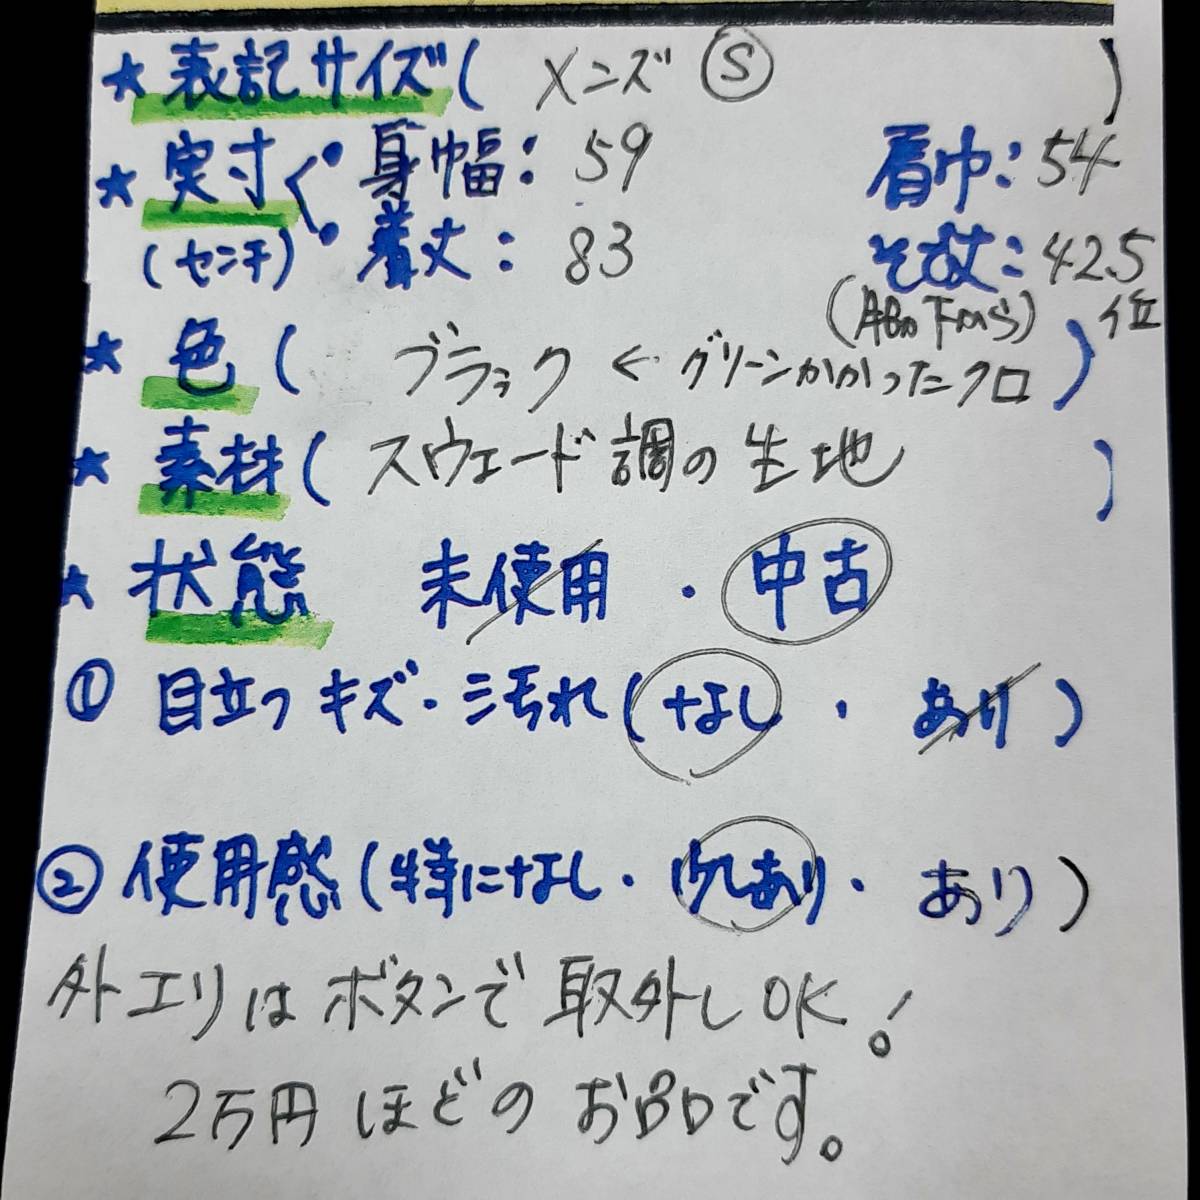 ★表記サイズ( メンズ Ⓢ )
★実寸く・身幅:59 肩巾:54
(センチ)・着丈:83 そで丈:42.5位
(脇下から)
★色( ブラック ← グリーンかかったクロ )
★素材( スウェード調の生地 )
★状態 未使用・中古
① 目立つキズ・汚れ(なし・あり)
② 使用感(特になし・少しあり・あり)
外エリはボタンで取外しOK!
2万円ほどのお品です。